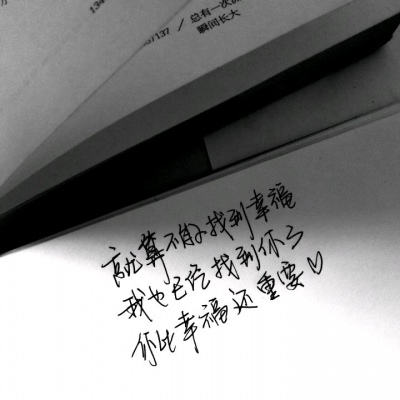 134
137 / 总有一次
瞬间长大
就算不能找到幸福
我也已经找到你了
你比幸福还重要♡